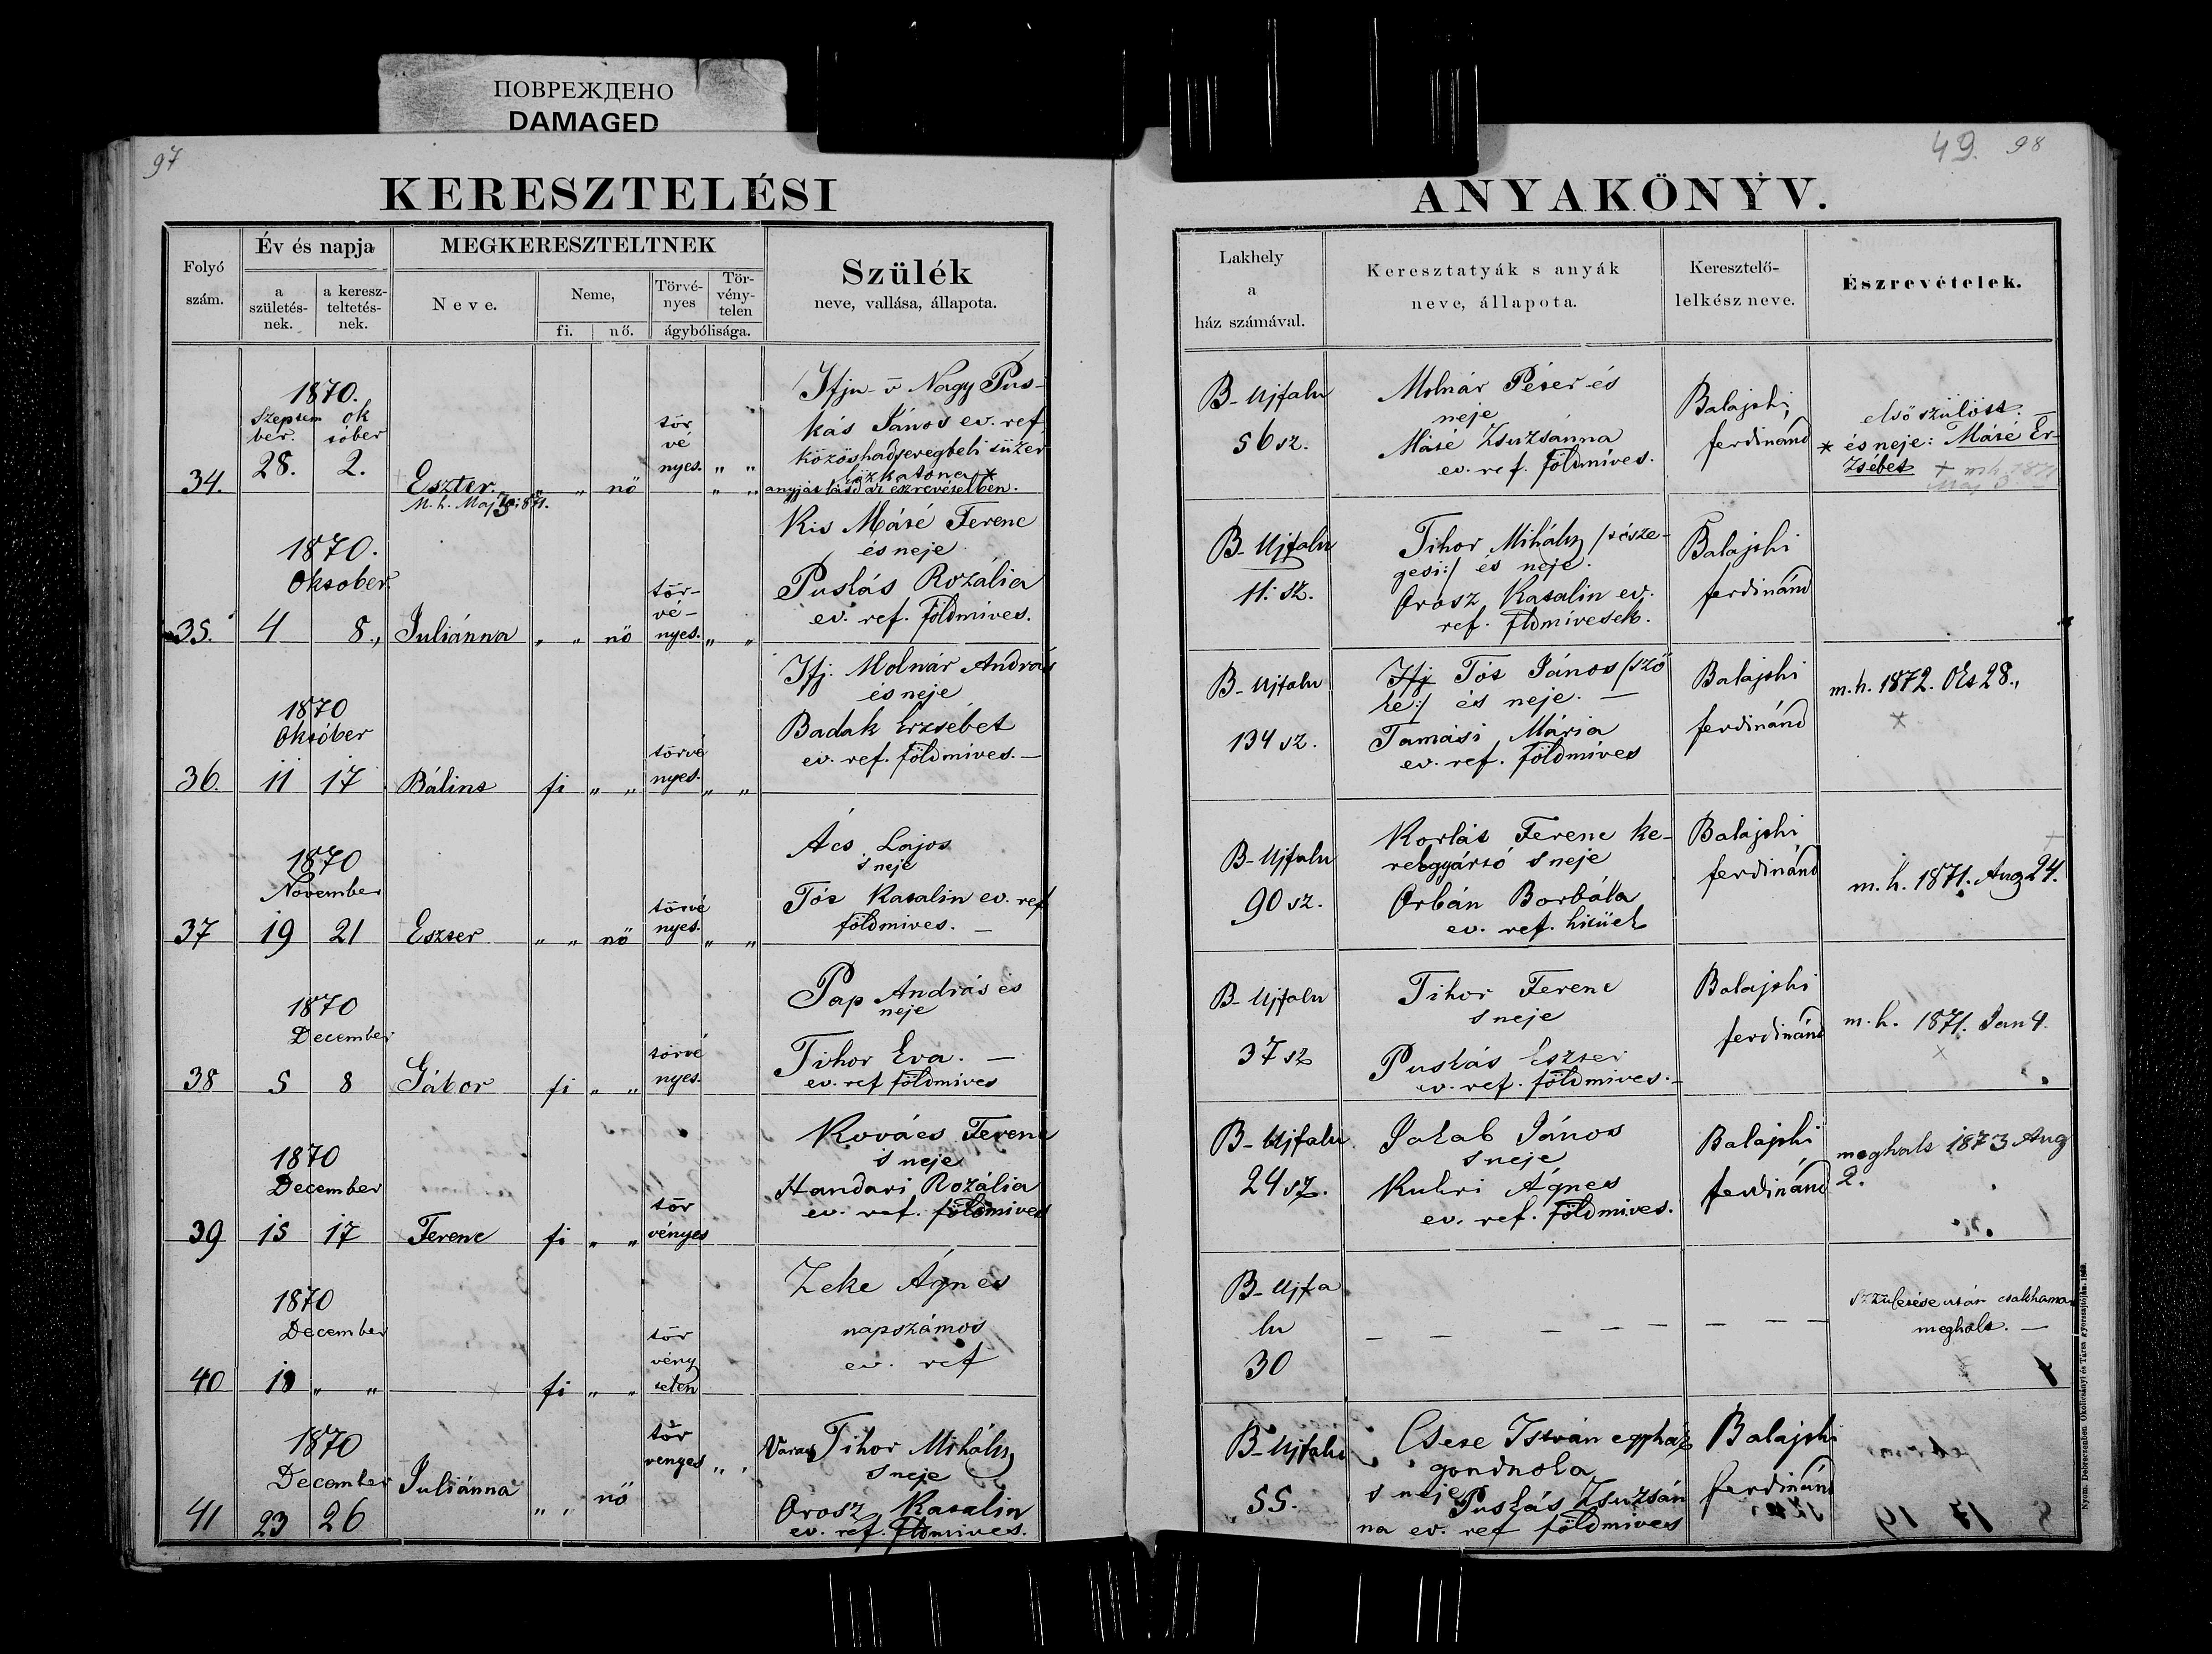 ПОВРЕЖДЕНО
DAMAGED
97
KERESZTELÉSI
Folyó szám.
Év és napja
a születés-nek.
a keresz-teltetés-nek.
MEGKERESZTELTNEK
Neve.
Neme,
fi.
nő.
Törvé-nyes
Tör-vény-telen
ágybólisága.
Szülék
neve, vallása, állapota.
49. 98
ANYAKÖNYV.
Lakhely
a
ház számával.
Keresztatyák s anyák
neve, állapota.
Keresztelő-
lelkész neve.
Észrevételek.
34.
1870.
Szeptem
ber.
28.
ok
tóber
2.
Eszter.
M. h. Maj
„ „ nő
tör
vé
nyes. „ „
Ifju v Nagy Pus-
kás János ev. ref.
közöshadseregbeli tüzer
közkatona *
anyját lásd az észrevételben.
B-Ujfalu
56 sz.
Molnár Péter és
neje
Máté Zsuzsánna
ev. ref. földmives.
Balajthi
ferdinánd
első szülött. —
* és neje: Máté Er-
zsébet † mh. 1871
Maj 3
35.
1870.
Oktober
4 8.,
Juliánna
„ „ nő
tör-
vé-
nyes. „ „
Kis Máté Ferenc
és neje
Puskás Rozália
ev. ref. földmives.
B-Ujfalu
11. sz.
Tihor Mihály
és neje.
Orosz Katalin ev.
ref. fldmivesek.
Balajthi
ferdinánd
36.
1870
Október
11 17
Bálint
fi „ „
törvé
nyes. „ „
Ifj. Molnár András
és neje
Badak Erzsébet
ev. ref. földmives. —
B-Ujfalu
134 sz.
Ifj Tót János /:ző
ke:/ és neje. —
Tamási Mária
ev. ref. földmives
Balajthi
ferdinánd
m. h. 1872. Okt 28.,
37
1870
November
19 21
Eszter
„ „ nő
törvé
nyes. „ „
Ács Lajos
s neje
Tót Katalin ev. ref
földmives. —
B-Ujfalu
90 sz.
Korlát Ferenc ke-
rékgyártó s neje
Orbán Borbála
ev. ref. hitüek
Balajthi
ferdinánd
m. h. 1871. Aug 24.
38
1870
December
5 8
Gábor
fi „ „
törvé
nyes.
Pap András és
neje
Tihor Eva. —
ev. ref földmives
B-Ujfalu
37 sz
Tihor Ferenc
s neje
Puskás Eszter
ev. ref. földmives. —
Balajthi
ferdinánd
m. h. 1871. Jan 4.
39
1870
December
15 17
Ferenc
fi „ „
tör
vényes
Kovács Ferenc
s neje
Handari Rozália
ev. ref. földmives
B-Ujfalu
24 sz.
Jakab János
s neje
Kukri Ágnes
ev. ref. földmives.
Balajthi
ferdinánd
meghalt 1873 Aug
2.
40
1870
December
18 „ „
fi „ „
tör
vény
telen
Zeke Ágnes
napszámos
ev. ref
B-Ujfa
lu
30
— — — — — — — —
Születése után csakhamar
meghalt. —
41
1870
December
23 26
Juliánna
„ „ nő
tör
venyes „ „
Tihor Mihály
s neje
Orosz Katalin
ev. ref. fldmives.
B-Ujfalu
55.
Csete István egyház
gondnoka
s neje Puskás Zsuzsán
na ev. ref földmives
Balajthi
ferdinánd